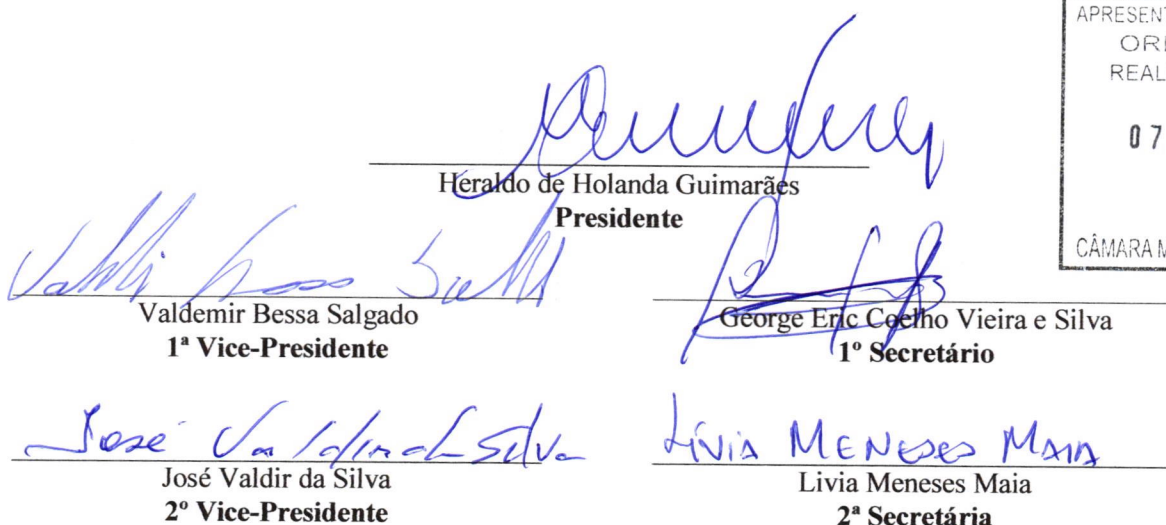 APRESENT
OR
REAL
07
Heraldo de Holanda Guimarães
Presidente
CÂMARA M
Valdemir Bessa Salgado
1ª Vice-Presidente
George Eric Coelho Vieira e Silva
1º Secretário
José Valdir da Silva
José Valdir da Silva
2º Vice-Presidente
LÍVIA MENESES MAIA
Livia Meneses Maia
2ª Secretária